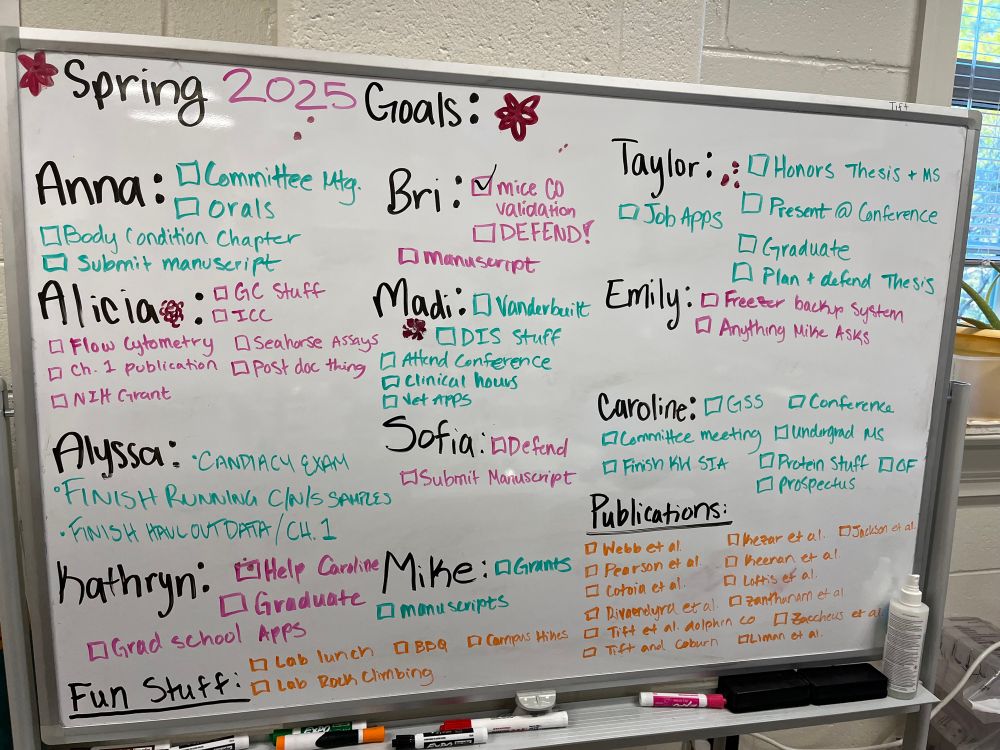 Spring 2025 Goals:
Tift
Anna: Committee Mtg.
Orals
Body Condition Chapter
Submit manuscript
Bri: mice CO
validation
DEFEND!
manuscript
Taylor: Honors Thesis + MS
Job Apps
Present @ Conference
Graduate
Plan + defend Thesis
Alicia: GC Stuff
ICC
Flow Cytometry
Seahorse Assays
Ch. 1 publication
Post doc thing
NIH Grant
Madi: Vanderbuilt
DIS Stuff
Attend Conference
Clinical hours
Vet APPS
Emily: Freezer backup System
Anything Mike Asks
Alyssa: • CANDIACY EXAM
• FINISH RUNNING C/N/S SAMPLES
• FINISH HAUL OUT DATA / CH. 1
Sofia: Defend
Submit Manuscript
Caroline: GSS
Conference
Committee meeting
Undergrad MS
Finish KW SIA
Protein Stuff
OF
Prospectus
Kathryn: Help Caroline
Graduate
Grad school Apps
Mike: Grants
manuscripts
Publications:
Webb et al.
Pearson et al.
et al.
et al.
Tift et al. dolphin CO
Tift and Coburn
Kezar et al.
Keenan et al.
Loftis et al.
Zanthanam et al
Zaccheus et al
Liman et al.
Jackson et al.
Fun Stuff:
Lab lunch
BBQ
Campus Hikes
Lab Rock Climbing
EXPO
EXPO